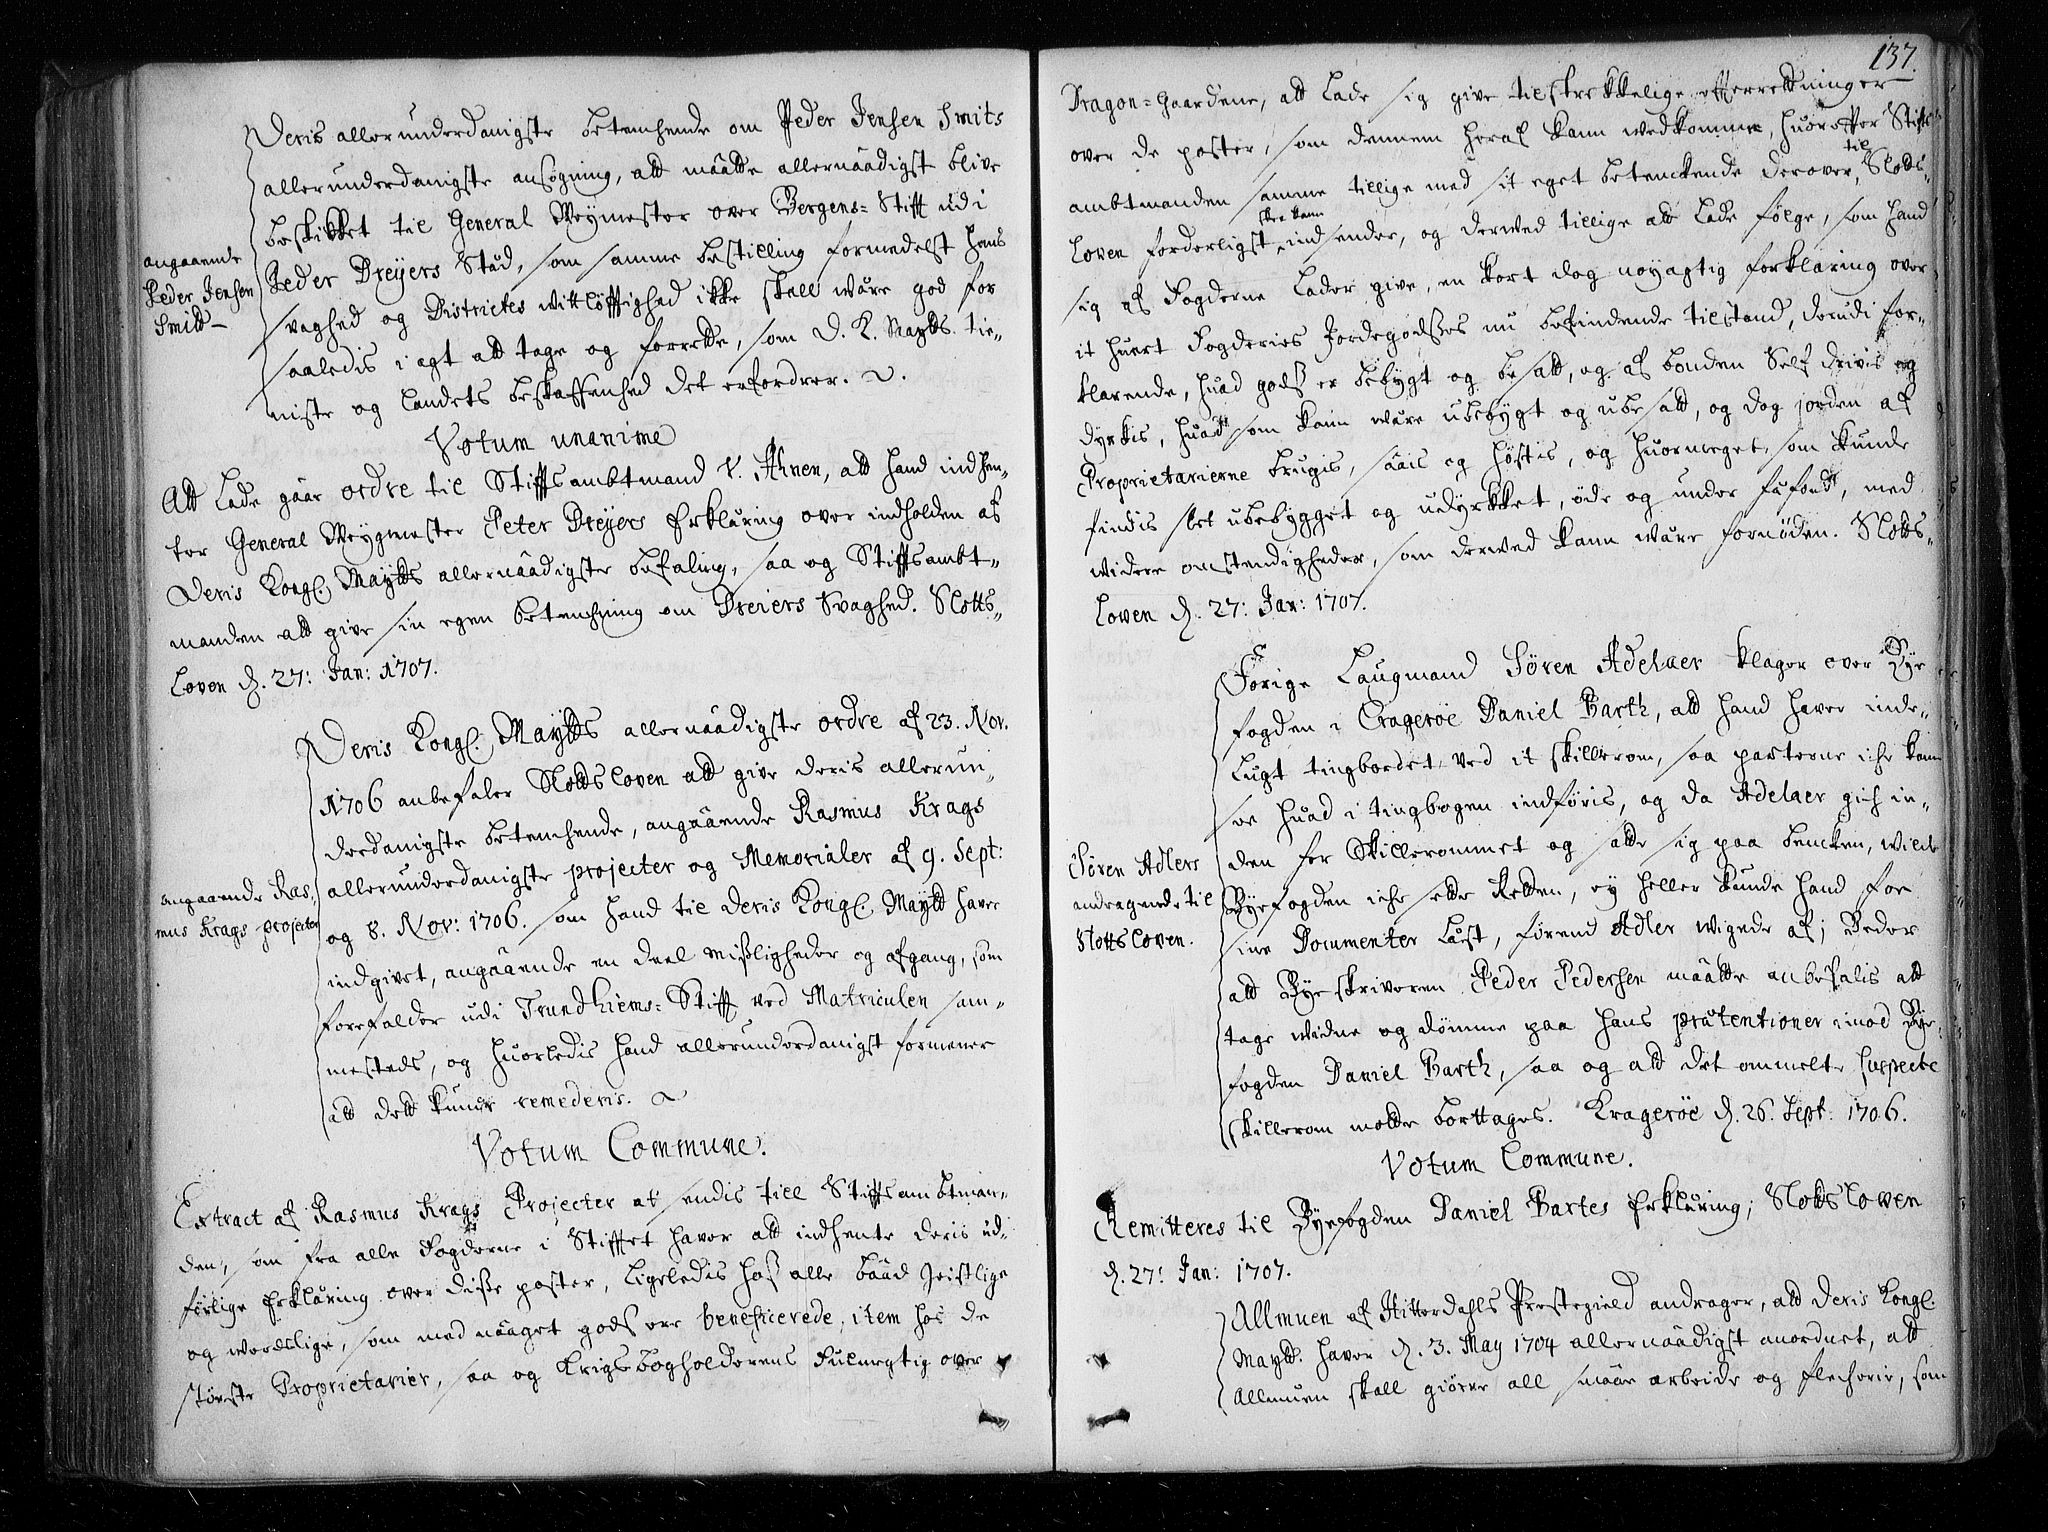 Deris allerunderdanigste betenchende om Peder Jensen Smits
allerunderdanigste ansøgning, att maatte allernaadigst blive
beskikket til General Weymester over Bergens=Stifft udi
Peder Dreyers Stad, som samme bestilling formedelst hans
svaghed og Districtes wittløfftighed ikke skall wære god for
saaledis i agt att tage og forrette, som D. K. Maytts. tie-
niste og Landets beskaffenhed det erfordrer.
angaaende
Peder Jensen
Smitt
Votum unanime
Att lade gaar ordre til Stifftsambtmand v. Ahnen, att hand indhen-
ter General Weygmester Peter Dreyers Erklæring over indholden af
Deris Kongl. Maytts allernaadigste befaling, saa og Stifftsambt-
manden att give sin egen betenchning om Dreiers Svaghed. Slotts-
Loven d. 27: Jan: 1707.
Deris Kongl. Maytts allernaadigste ordre af 23. Nov.
1706 anbefaler Slottsloven att give deris allerun-
derdanigste betenchende, angaaende Rasmus Krags
allerunderdanigste projecter og Memorialer af 9. Sept:
og 8. Nov: 1706. som hand til deris Kongl. Maytt haver
indgivet, angaaende en deel misligheder og afgang, som
forefalder udi Trundhiems=Stifft ved Matriculen sam-
mesteds, og huorledis hand allerunderdanigst formener
att dett kunde remederis.
angaaende Ras-
mus Krags projecter
Votum Commune.
Extract af Rasmus Krags Projecter at sendis till Stifftsambtman-
den, som fra alle Fogderne i Stifftet haver att indhente deris ud-
førlige Erklæring over disse poster, ligeledis hoss alle baad Geistlige
og wordslige, som med naaget gods ere beneficerede, item hos de
største Proprietarier, saa og Krigsbogholderens Fulmegtig over
137.
Dragon=Gaardene, att lade sig give tilstrekkelige efterrettninger
over de poster, som dennem heraf kann wedkomme, huorefter Stiffts-
ambtmanden samme tillige med sit eget betenckende derover, til Slotts-
Loven forderligst skee kann indsender, og derwed tillige att lade følge, som hand
sig af Fogderne lader give, en kort dog nøyagtig forklaring over
it huert Fogderies Jordegodses nu befindende tilstand, derudi for-
klarende, huad gods er bebygt og besatt, og af bonden Self drivis og
dyrkis, huad som kann wære ubebygt og ubesatt, og dog jorden af
Proprietarierne brugis, saais og høstis, og huormeget, som kunde
findis slet ubebygget og udyrkket, øde og under fæfond, med
widere omstendigheder, som derwed kann wære fornøden. Slotts-
Loven d. 27: Jan: 1707.
Forige Laugmand Søren Adelaer klager over Bye
fogden i Cragerøe Daniel Barth, att hand haver inde-
lugt tingbordet ved it skillerom, saa parterne iche kann
see huad i tingbogen indføris, og da Adelaer gich in-
den for Skillerommet og satte sig paa bencken, wilde
Byefogden iche sette Retten, ey heller kunde hand for
sine Documenter læst, førend Adler wigede af; Beder
att Byeskriveren Peder Pedersen maatte anbefalis att
tage widne og dømme paa hans prætentioner imod Bye-
fogden Daniel Barth, saa og att det ommelte suspecte
skillerom motte borttages. Kragerøe d. 26. Sept: 1706.
Søren Adlers
andragende til
Slottsloven.
Votum Commune.
Remitteres til Byefogden Daniel Bartes Erklæring; Slottsloven
d. 27: Jan: 1707.
Allmuen af Hitterdahls Prestegield andrager, att deris Kongl.
Maytt. haver d. 3. May 1704 allernaadigst anordnet, att
Allmuen skall giøre all smaae arbeide og flechverie, som